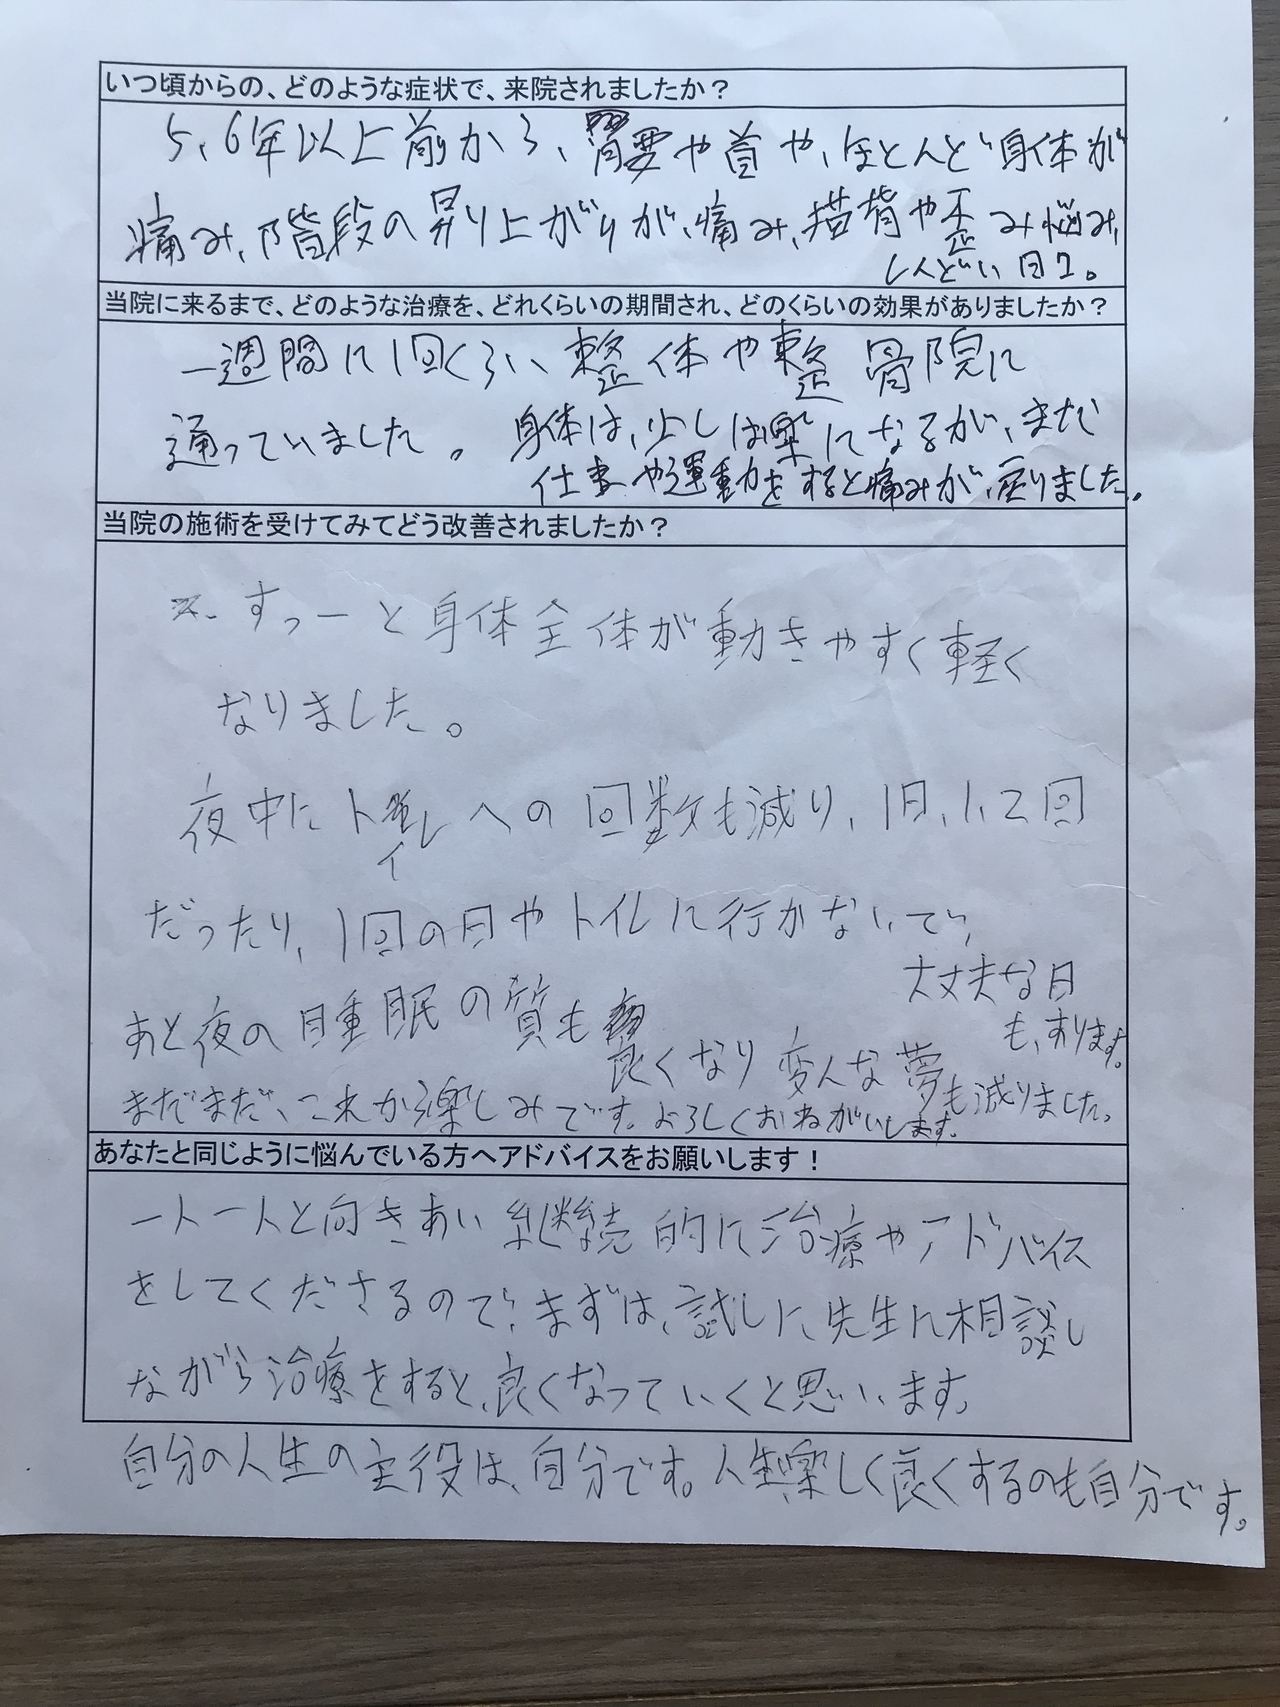 いつ頃からの、どのような症状で、来院されましたか？
5、6年以上前から、腰や首や、ほとんど身体が
痛み、階段の昇り上がりが、痛み、猫背や歪み悩み、
しんどい日々。
当院に来るまで、どのような治療を、どれくらいの期間され、どのくらいの効果がありましたか？
一週間に1回くらい整体や整骨院に
通っていました。身体は、少しは楽になるが、まだ
仕事や運動をすると痛みが、戻りました。
当院の施術を受けてみてどう改善されましたか？
すっーと身体全体が動きやすく軽く
なりました。
夜中にトイレへの回数も減り、1日、1、2回
だったり、1回の日やトイレに行かないで、
大丈夫な日
も、あります。
あと夜の睡眠の質も良くなり変な夢も減りました。
まだまだ、これから楽しみです。よろしくおねがいします。
あなたと同じように悩んでいる方へアドバイスをお願いします！
一人一人と向きあい継続的に治療やアドバイス
をしてくださるので、まずは、試しに、先生に相談し
ながら治療をすると、良くなっていくと思います。
自分の人生の主役は、自分です。人生、楽しく良くするのも自分です。